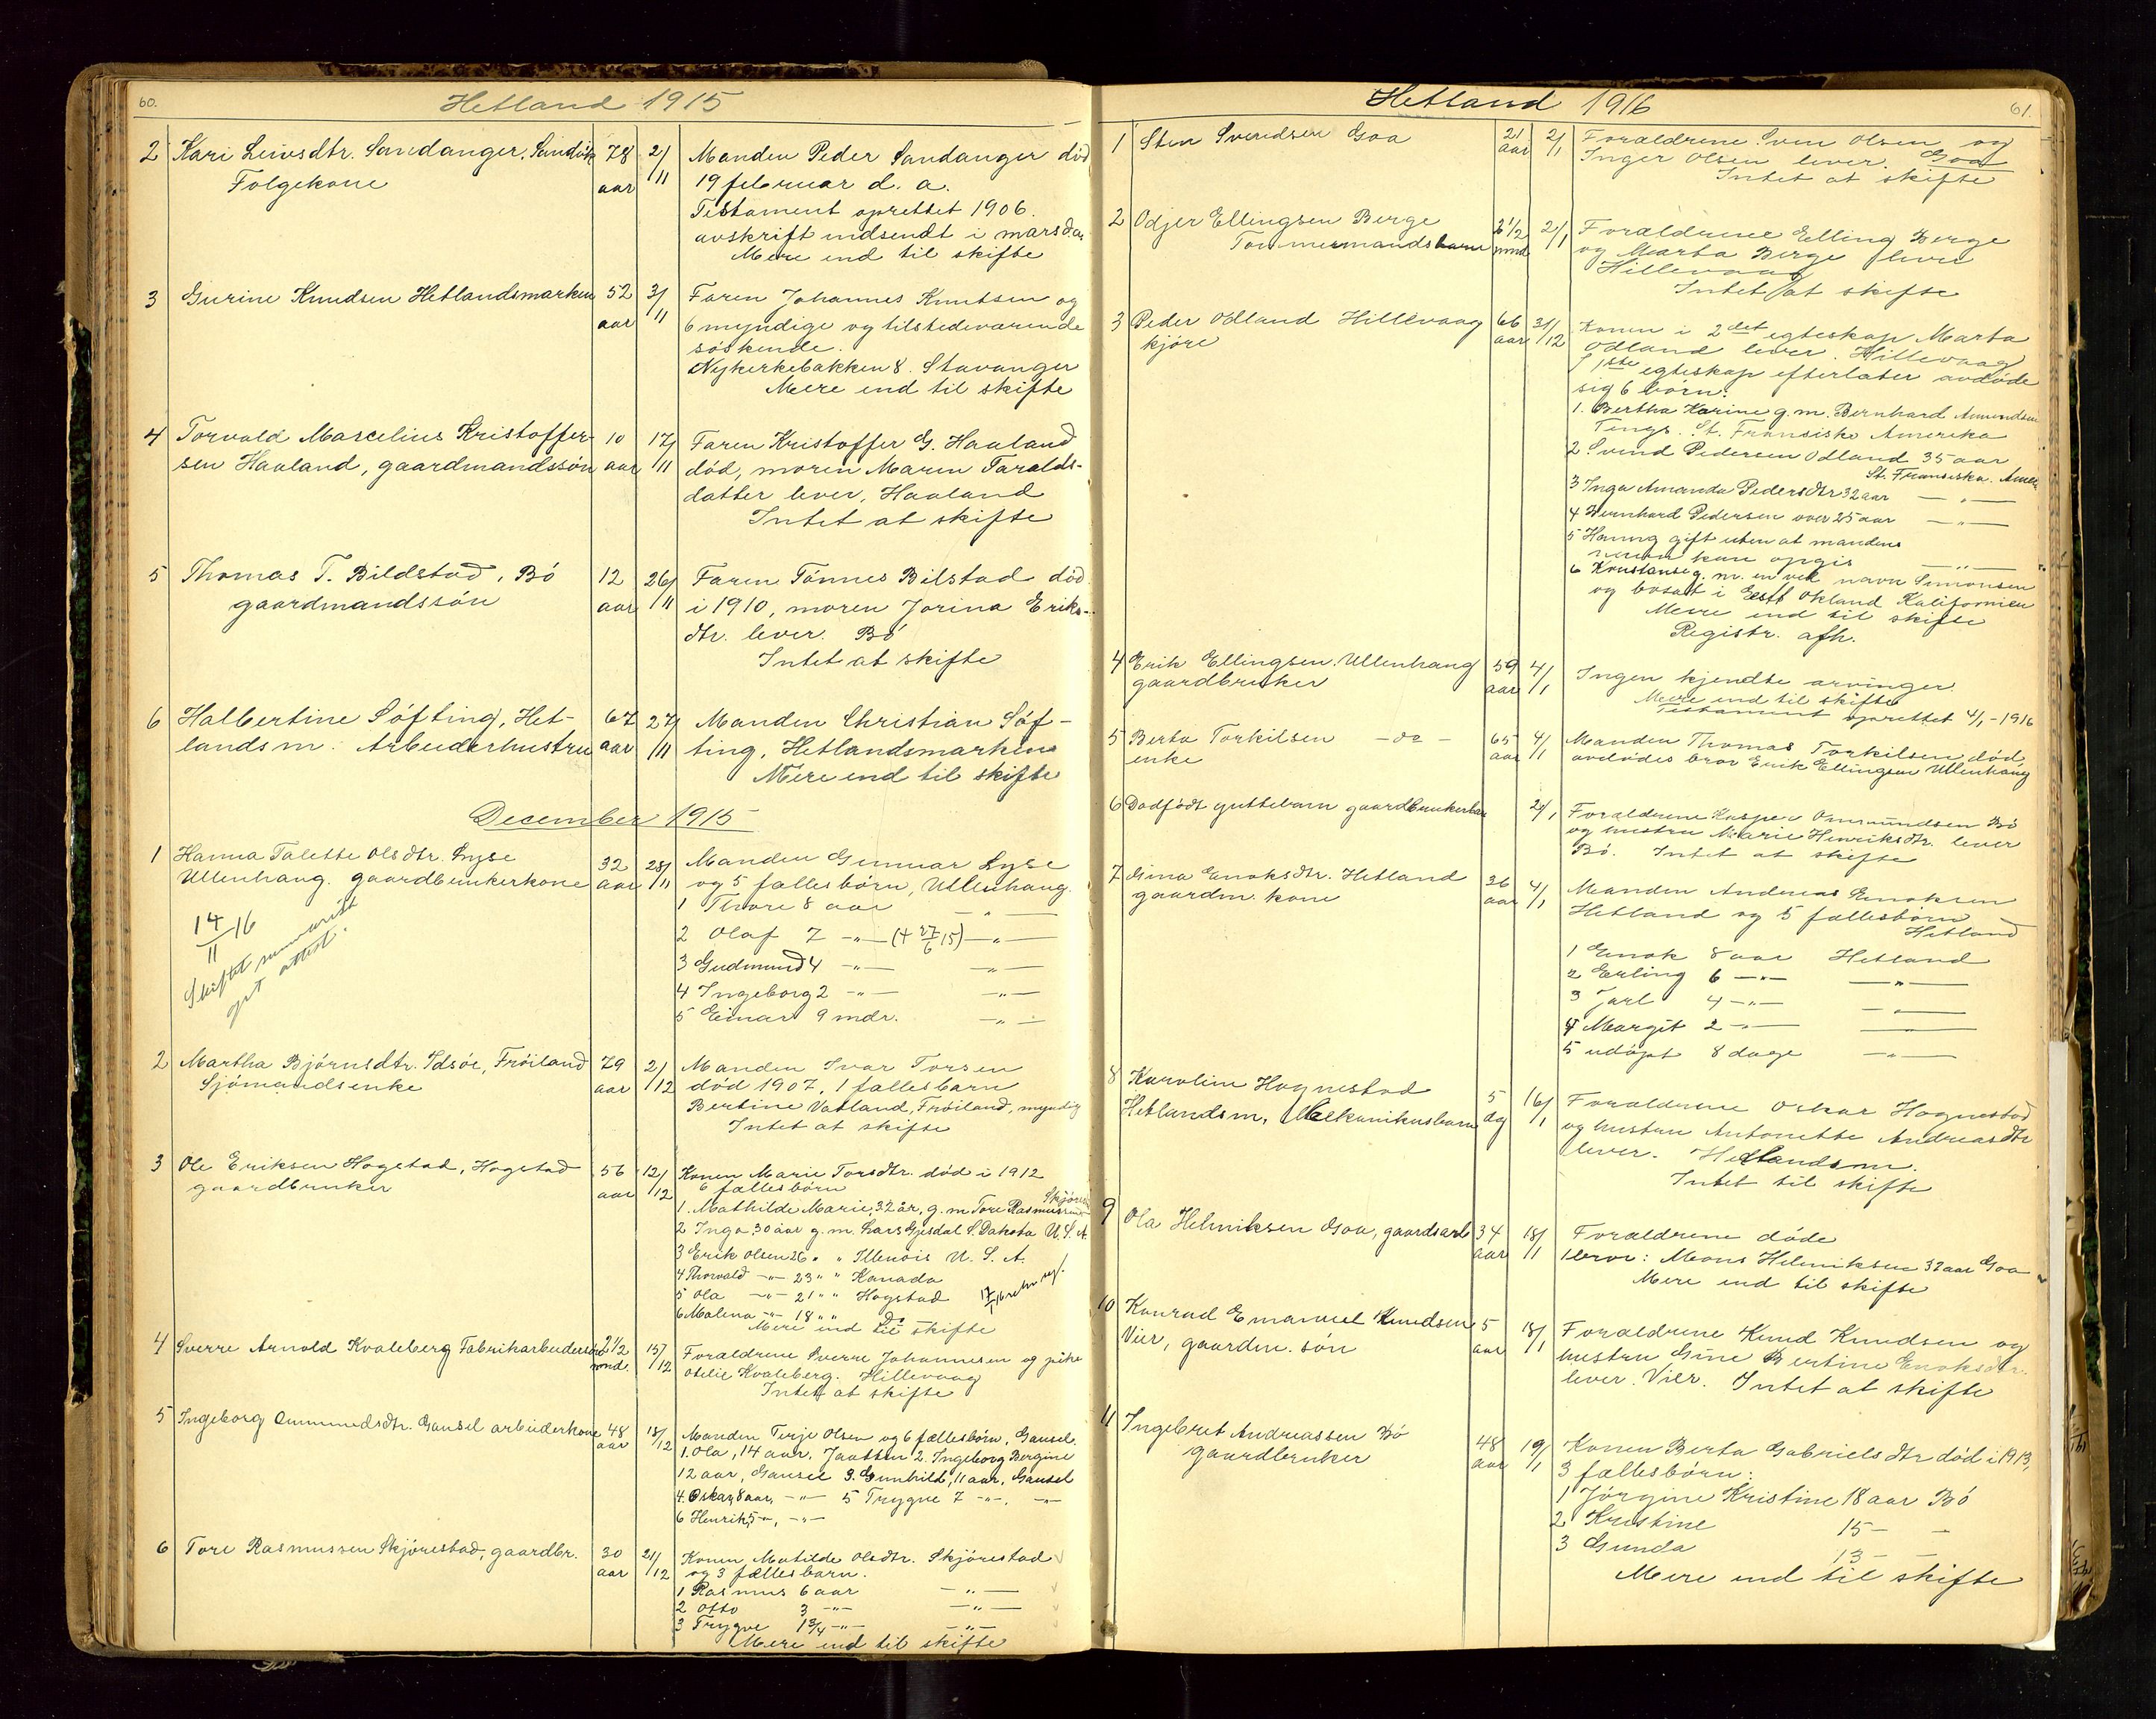 60.
Hetland 1915
2 Kari Leivsdtr. Sandanger, 78 2/11 Manden Peder Sandanger død
Folgekone aar 19 februar d. a.
Testament oprettet 1906.
avskrift indsendt i mars d.a.
Mere end til skifte
3 Gurine Knudsen Hetlandsmarken 52 3/11 Faren Johannes Knutsen og
aar 6 myndige og tilstedeværende
søskende.
Nykirkebakken 8. Stavanger
Mere end til skifte
4 Torvald Marcelius Kristoffer- 10 17/11 Faren Kristoffer G. Haaland
sen Haaland, gaardmandssøn aar død, moren Maren Taralds-
datter lever, Haaland
Intet at skifte
5 Thomas T. Bildstad, Bø 12 26/11 Faren Tönnes Bilstad død
gaardmandssön aar i 1910, moren Jorina Eriks-
dtr. lever. Bö
Intet at skifte
6 Halbertine Söfting, Het- 67 27/11 Manden Christian Söf-
landsm. Arbeiderhustru aar ting, Hetlandsmarken
Mere end til skifte
December 1915
1 Hanna Talette Olsdtr. Lyse 32 28/11 Manden Gunnar Lyse
Ullenhaug. gaardbrukerkone aar og 5 fællesbörn, Ullenhaug.
1 Thore 8 aar — " —
14/11 16 2 Olaf 7 -"- (+ 27/6 15) — " —
Skiftet 3 Gudmund 4 -"- — " —
attest. 4 Ingeborg 2 -"- — " —
5 Einar 9 mdr. — " —
2 Martha Bjørnsdtr. Idsöe, Fröiland 79 2/12 Manden Ivar Torsen
Sjömandsenke aar död 1907, 1 fællesbarn
Bertine Vatland, Fröiland, myndig
Intet at skifte
3 Ole Eriksen Hogstad, Hogstad 56 12/12 Konen Marie Torsdtr. död i 1912
gaardbruker aar 6 fællesbörn
1. Mathilde Marie, 32 år, g. m Tore Rasmussen
2 Inga 30 aar g. m. Lars Gjesdal S. Dakota U. S. A.
3 Erik Olsen 26 " " Illenois U. S. A.
4 Thorvald -"- 23 " " Kanada
5 Ola -"- 21 " " Hogstad
6 Malena -"- 18 " " do
Mere end til skifte
4 Sverre Arnold Kvaleberg Fabrikarbeiders 2 1/2 15/12 Forældrene Sverre Johannesen og pike
mnd. Otelie Kvaleberg. Hillevaag
Intet at skifte
5 Ingeborg Ommundsdtr. Gausel arbeiderkone 48 18/12 Manden Terje Olsen og 6 fællesbörn, Gausel.
aar 1. Ola, 14 aar, Jaatten 2. Ingeborg Bergine
12 aar, Gausel 3. Gunhild, 11 aar, Gausel
4. Oskar, 8 aar, -"- 5 Trygve 7 -"-, -"-
6 Henrik, 5 -"-, -"-
6 Tore Rasmussen Skjörestad, gaardbr. 30 21/12 Konen Matilde Olsdtr. Skjörestad
aar og 3 fællesbarn.
1 Rasmus 6 aar — " —
2 Otto 3 -"- — " —
3 Trygve 1 3/4 -"- — " —
Mere end til skifte
61.
Hetland 1916
1 Sten Svendsen Goa 21 2/1 Forældrene Sven Olsen og
aar Inger Olsen lever. Goa
Intet at skifte
2 Odjer Ellingsen Berge 2 1/2 2/1 Forældrene Elling Berge
Tømmermandsbarn mnd og Marta Berge lever
Hillevaag
Intet at skifte
3 Peder Odland Hillevaag 66 31/12 Konen i 2det egteskap Marta
kjöre aar Odland lever. Hillevaag
I 1ste egteskap efterlater avdöde
sig 6 börn:
1. Bertha Karine g. m. Bernhard Amundsen
Tings. St. Fransisko Amerika
2 Svend Pedersen Odland 35 aar
St. Fransisko. Amer
3 Inga Amanda Pedersdtr 32 aar — " —
4 Bernhard Pedersen over 25 aar — " —
5 Hanna gift uten at mandens
navn kan opgis — " —
6 Konstanse g. m. en ved navn Simonsen
og bosatt i East Okland Kalifornien
Mere end til skifte
Registr. afh.
4 Erik Ellingsen Ullenhaug 59 4/1 Ingen kjendte arvinger.
gaardbruker aar Mere end til skifte
Testament oprettet 4/1 - 1916
5 Berta Torkilsen - do - 65 4/1 Manden Thomas Torkilsen död
enke aar avdödes bror Erik Ellingsen Ullenhaug
6 Dødfödt guttebarn gaardbrukerbarn 2/1 Forældrene Kasper Ommundsen Bö
og hustru Marie Henriksdtr. lever
Bö. Intet at skifte
7 Gina Enoksdtr. Hetland 36 4/1 Manden Andreas Enoksen
gaardm. kone aar Hetland og 5 fællesbörn
Hetland
1 Enok 8 aar Hetland
2 Erling 6 -"- — " —
3 Jarl 4 -"- — " —
4 Margit 2 -"- —
5 udöpt 8 dage — " —
8 Karoline Hognestad 5 16/1 Forældrene Oskar Hognestad
Hetlandsm, Mekanikusbarn dg og hustru Antonette Andreasdtr
lever. Hetlandsm.
Intet til skifte
9 Ola Helmiksen Goa, gaardsarb 34 18/1 Forældrene döde
aar 1 bror: Mons Helmiksen 32 aar Goa
Mere end til skifte
10 Konrad Emanuel Knudsen 5 18/1 Forældrene Knud Knudsen og
Vier, gaardm. sön aar hustru Gine Bertine Enoksdtr.
lever. Vier. Intet at skifte
11 Ingebret Andreassen Bö 48 19/1 Konen Berta Gabrielsdtr död i 1913,
gaardbruker aar 3 fællesbörn:
1 Jörgine Kristine 18 aar Bö
2 Kristine 15 - -
3 Gunda 13 - -
Mere end til skifte